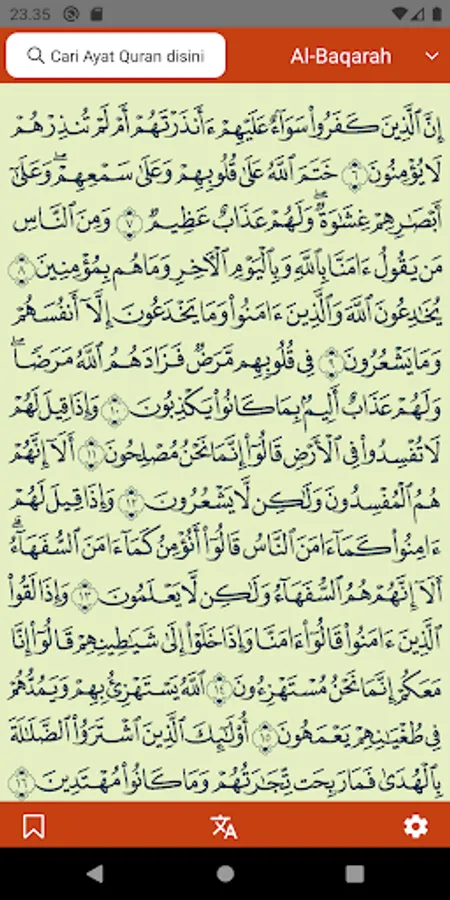 23.35
Cari Ayat Quran disini
Al-Baqarah
إِنَّ ٱلَّذِينَ كَفَرُوا۟ سَوَآءٌ عَلَيْهِمْ ءَأَنذَرْتَهُمْ أَمْ لَمْ تُنذِرْهُمْ
لَا يُؤْمِنُونَ ٦ خَتَمَ ٱللَّهُ عَلَىٰ قُلُوبِهِمْ وَعَلَىٰ سَمْعِهِمْ ۖ وَعَلَىٰٓ
أَبْصَـٰرِهِمْ غِشَـٰوَةٌ ۖ وَلَهُمْ عَذَابٌ عَظِيمٌ ٧ وَمِنَ ٱلنَّاسِ
مَن يَقُولُ ءَامَنَّا بِٱللَّهِ وَبِٱلْيَوْمِ ٱلْـَٔاخِرِ وَمَا هُم بِمُؤْمِنِينَ ٨
يُخَـٰدِعُونَ ٱللَّهَ وَٱلَّذِينَ ءَامَنُوا۟ وَمَا يَخْدَعُونَ إِلَّآ أَنفُسَهُمْ
وَمَا يَشْعُرُونَ ٩ فِى قُلُوبِهِم مَّرَضٌ فَزَادَهُمُ ٱللَّهُ مَرَضًا ۖ
وَلَهُمْ عَذَابٌ أَلِيمٌۢ بِمَا كَانُوا۟ يَكْذِبُونَ ١٠ وَإِذَا قِيلَ لَهُمْ
لَا تُفْسِدُوا۟ فِى ٱلْأَرْضِ قَالُوٓا۟ إِنَّمَا نَحْنُ مُصْلِحُونَ ١١ أَلَآ إِنَّهُمْ
هُمُ ٱلْمُفْسِدُونَ وَلَـٰكِن لَّا يَشْعُرُونَ ١٢ وَإِذَا قِيلَ لَهُمْ
ءَامِنُوا۟ كَمَآ ءَامَنَ ٱلنَّاسُ قَالُوٓا۟ أَنُؤْمِنُ كَمَآ ءَامَنَ ٱلسُّفَهَآءُ ۗ
أَلَآ إِنَّهُمْ هُمُ ٱلسُّفَهَآءُ وَلَـٰكِن لَّا يَعْلَمُونَ ١٣ وَإِذَا لَقُوا۟
ٱلَّذِينَ ءَامَنُوا۟ قَالُوٓا۟ ءَامَنَّا وَإِذَا خَلَوْا۟ إِلَىٰ شَيَـٰطِينِهِمْ قَالُوٓا۟ إِنَّا
مَعَكُمْ إِنَّمَا نَحْنُ مُسْتَهْزِءُونَ ١٤ ٱللَّهُ يَسْتَهْزِئُ بِهِمْ وَيَمُدُّهُمْ
فِى طُغْيَـٰنِهِمْ يَعْمَهُونَ ١٥ أُو۟لَـٰٓئِكَ ٱلَّذِينَ ٱشْتَرَوُا۟ ٱلضَّلَـٰلَةَ
بِٱلْهُدَىٰ فَمَا رَبِحَت تِّجَـٰرَتُهُمْ وَمَا كَانُوا۟ مُهْتَدِينَ ١٦